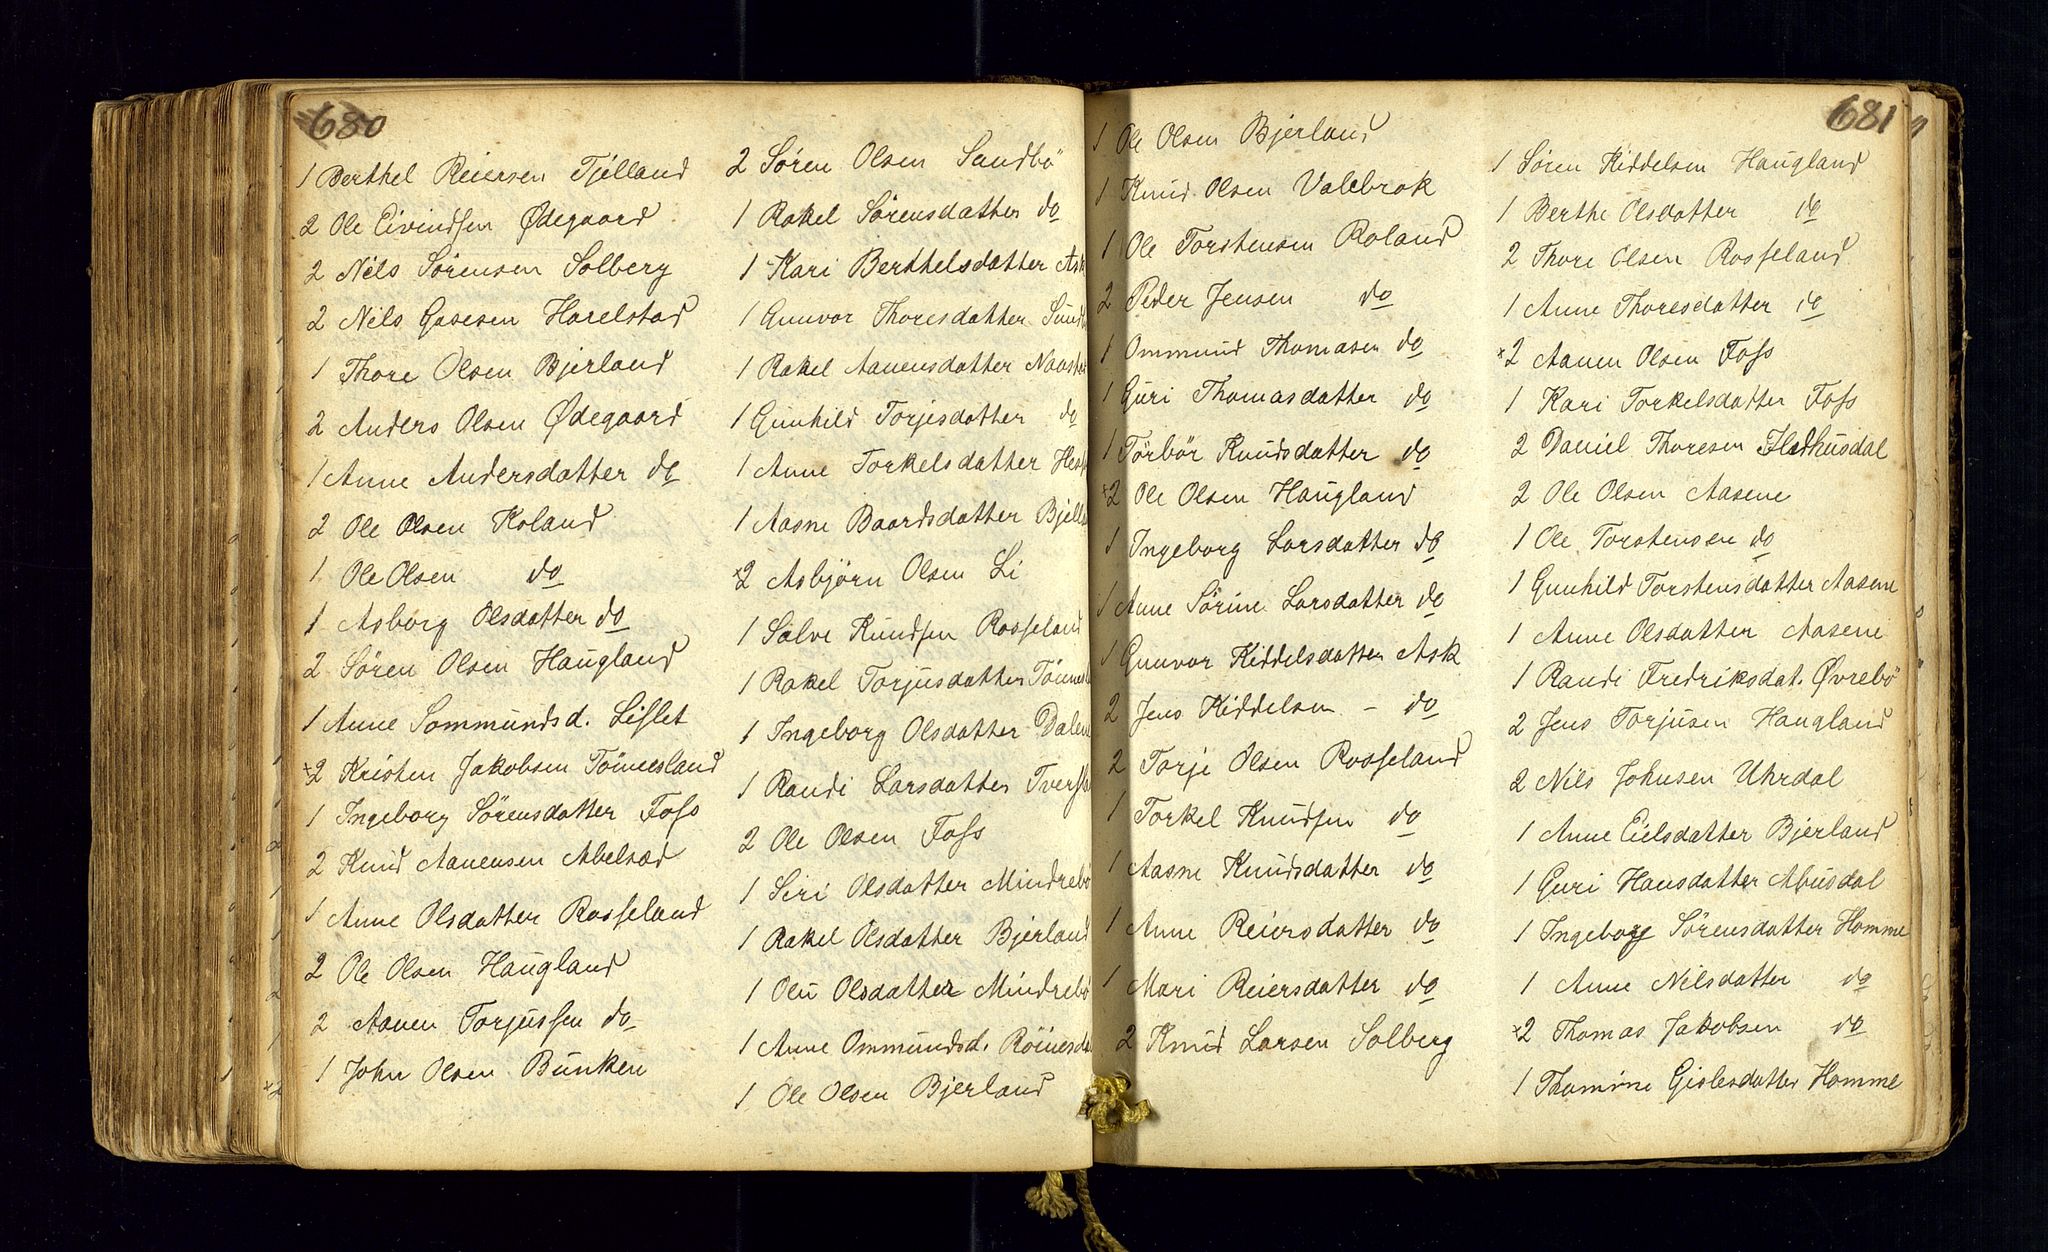 680
1 Berthel Reiersen Tjélland
2 Ole Eivindsen Ødegaard
2 Nils Sørensen Solberg
2 Nils Gasesen Harelstad
1 Thore Olsen Bjerland
2 Anders Olsen Ødegaard
1 Anne Andersdatter do
2 Ole Olsen Roland
1 Ole Olsen do
1 Asborg Olsdatter do
2 Søren Olsen Haugland
1 Anne Sommundsd. Lislet
×2 Kristen Jakobsen Tönnesland
1 Ingeborg Sørensdatter Foss
2 Knud Aanensen Abelsæd
1 Anne Olsdatter Rosseland
2 Ole Olsen Haugland
2 Aanen Torjussen do
1 John Olsen Bunken
2 Søren Olsen Sandbö
1 Rakel Sørensdatter do
1 Kari Berthelsdatter Ask
1 Gunvor Thoresdatter
1 Rakel Aanensdatter
1 Gunhild Torjesdatter do
1 Anne Torkelsdatter
1 Aasne Baardsdatter
×2 Asbjørn Olsen Li
1 Salve Knudsen Rosseland
1 Rakel Torjusdatter
1 Ingeborg Olsdatter Dalen
1 Randi Larsdatter
2 Ole Olsen Foss
1 Siri Olsdatter Mindrebö
1 Rakel Olsdatter Bjerland
1 Oli Olsdatter Mindrebö
1 Anne Ommundsd.
1 Ole Olsen Bjerland
681
1 Ole Olsen Bjerland
1 Knud Olsen Valebrok
1 Ole Torstensen Roland
2 Peder Jensen do
1 Ommund Thomasen do
1 Guri Thomasdatter do
1 Törbör Knudsdatter do
×2 Ole Olsen Haugland
1 Ingeborg Larsdatter do
1 Anne Sørine Larsdatter do
1 Gunvor Kiddelsdatter Ask
2 Jens Kiddelsen - do
2 Torje Olsen Rosseland
1 Torkel Knudsen do
1 Aasne Knudsdatter do
1 Anne Reiersdatter do
1 Mari Reiersdatter do
2 Knud Larsen Solberg
1 Søren Kiddelsen Haugland
1 Berthe Olsdatter do
2 Thore Olsen Rosseland
1 Anne Thoresdatter do
×2 Aanen Olsen Foss
1 Kari Torkelsdatter Foss
2 Daniel Thoresen Hedhusdal
2 Ole Olsen Aasene
1 Ole Torstensen do
1 Gunhild Torstensdatter Aasene
1 Anne Olsdatter Aasene
1 Randi Fredriksdat. Øvrebö
2 Jens Torjusen Haugland
2 Nils Johnsen Uhrdal
1 Anne Eielsdatter Bjerland
1 Guri Hansdatter Abusdal
1 Ingeborg Sørensdatter Homme
1 Anne Nilsdatter do
×2 Thomas Jakobsen do
1 Thomine Gislesdatter Homme